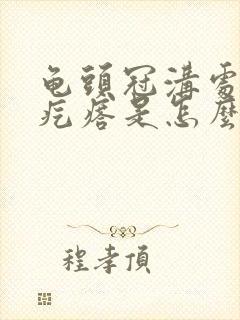 龟頭冠溝處
疙瘩是怎麼
程孝頂